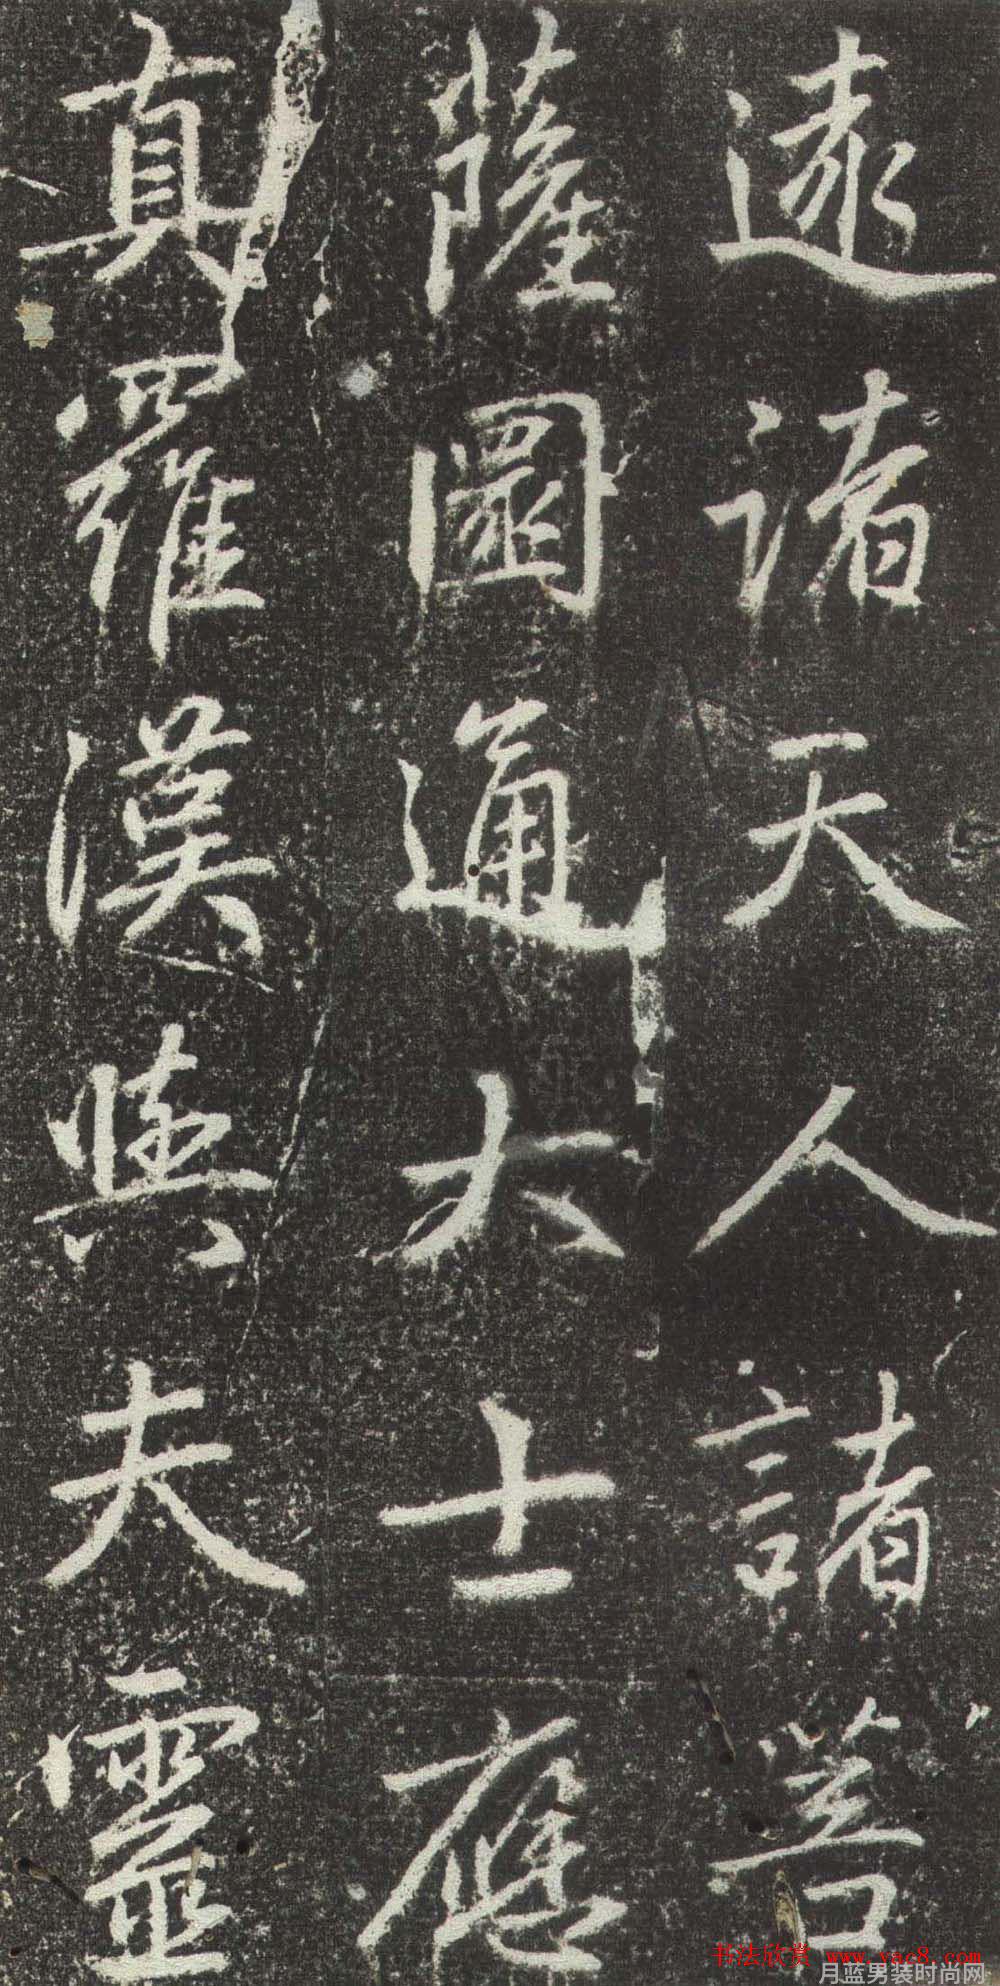 遠諸天人諸菩
薩圓通大士應
真羅漢與夫靈
书法欣赏 www.yac8.com
月蓝男装时尚网